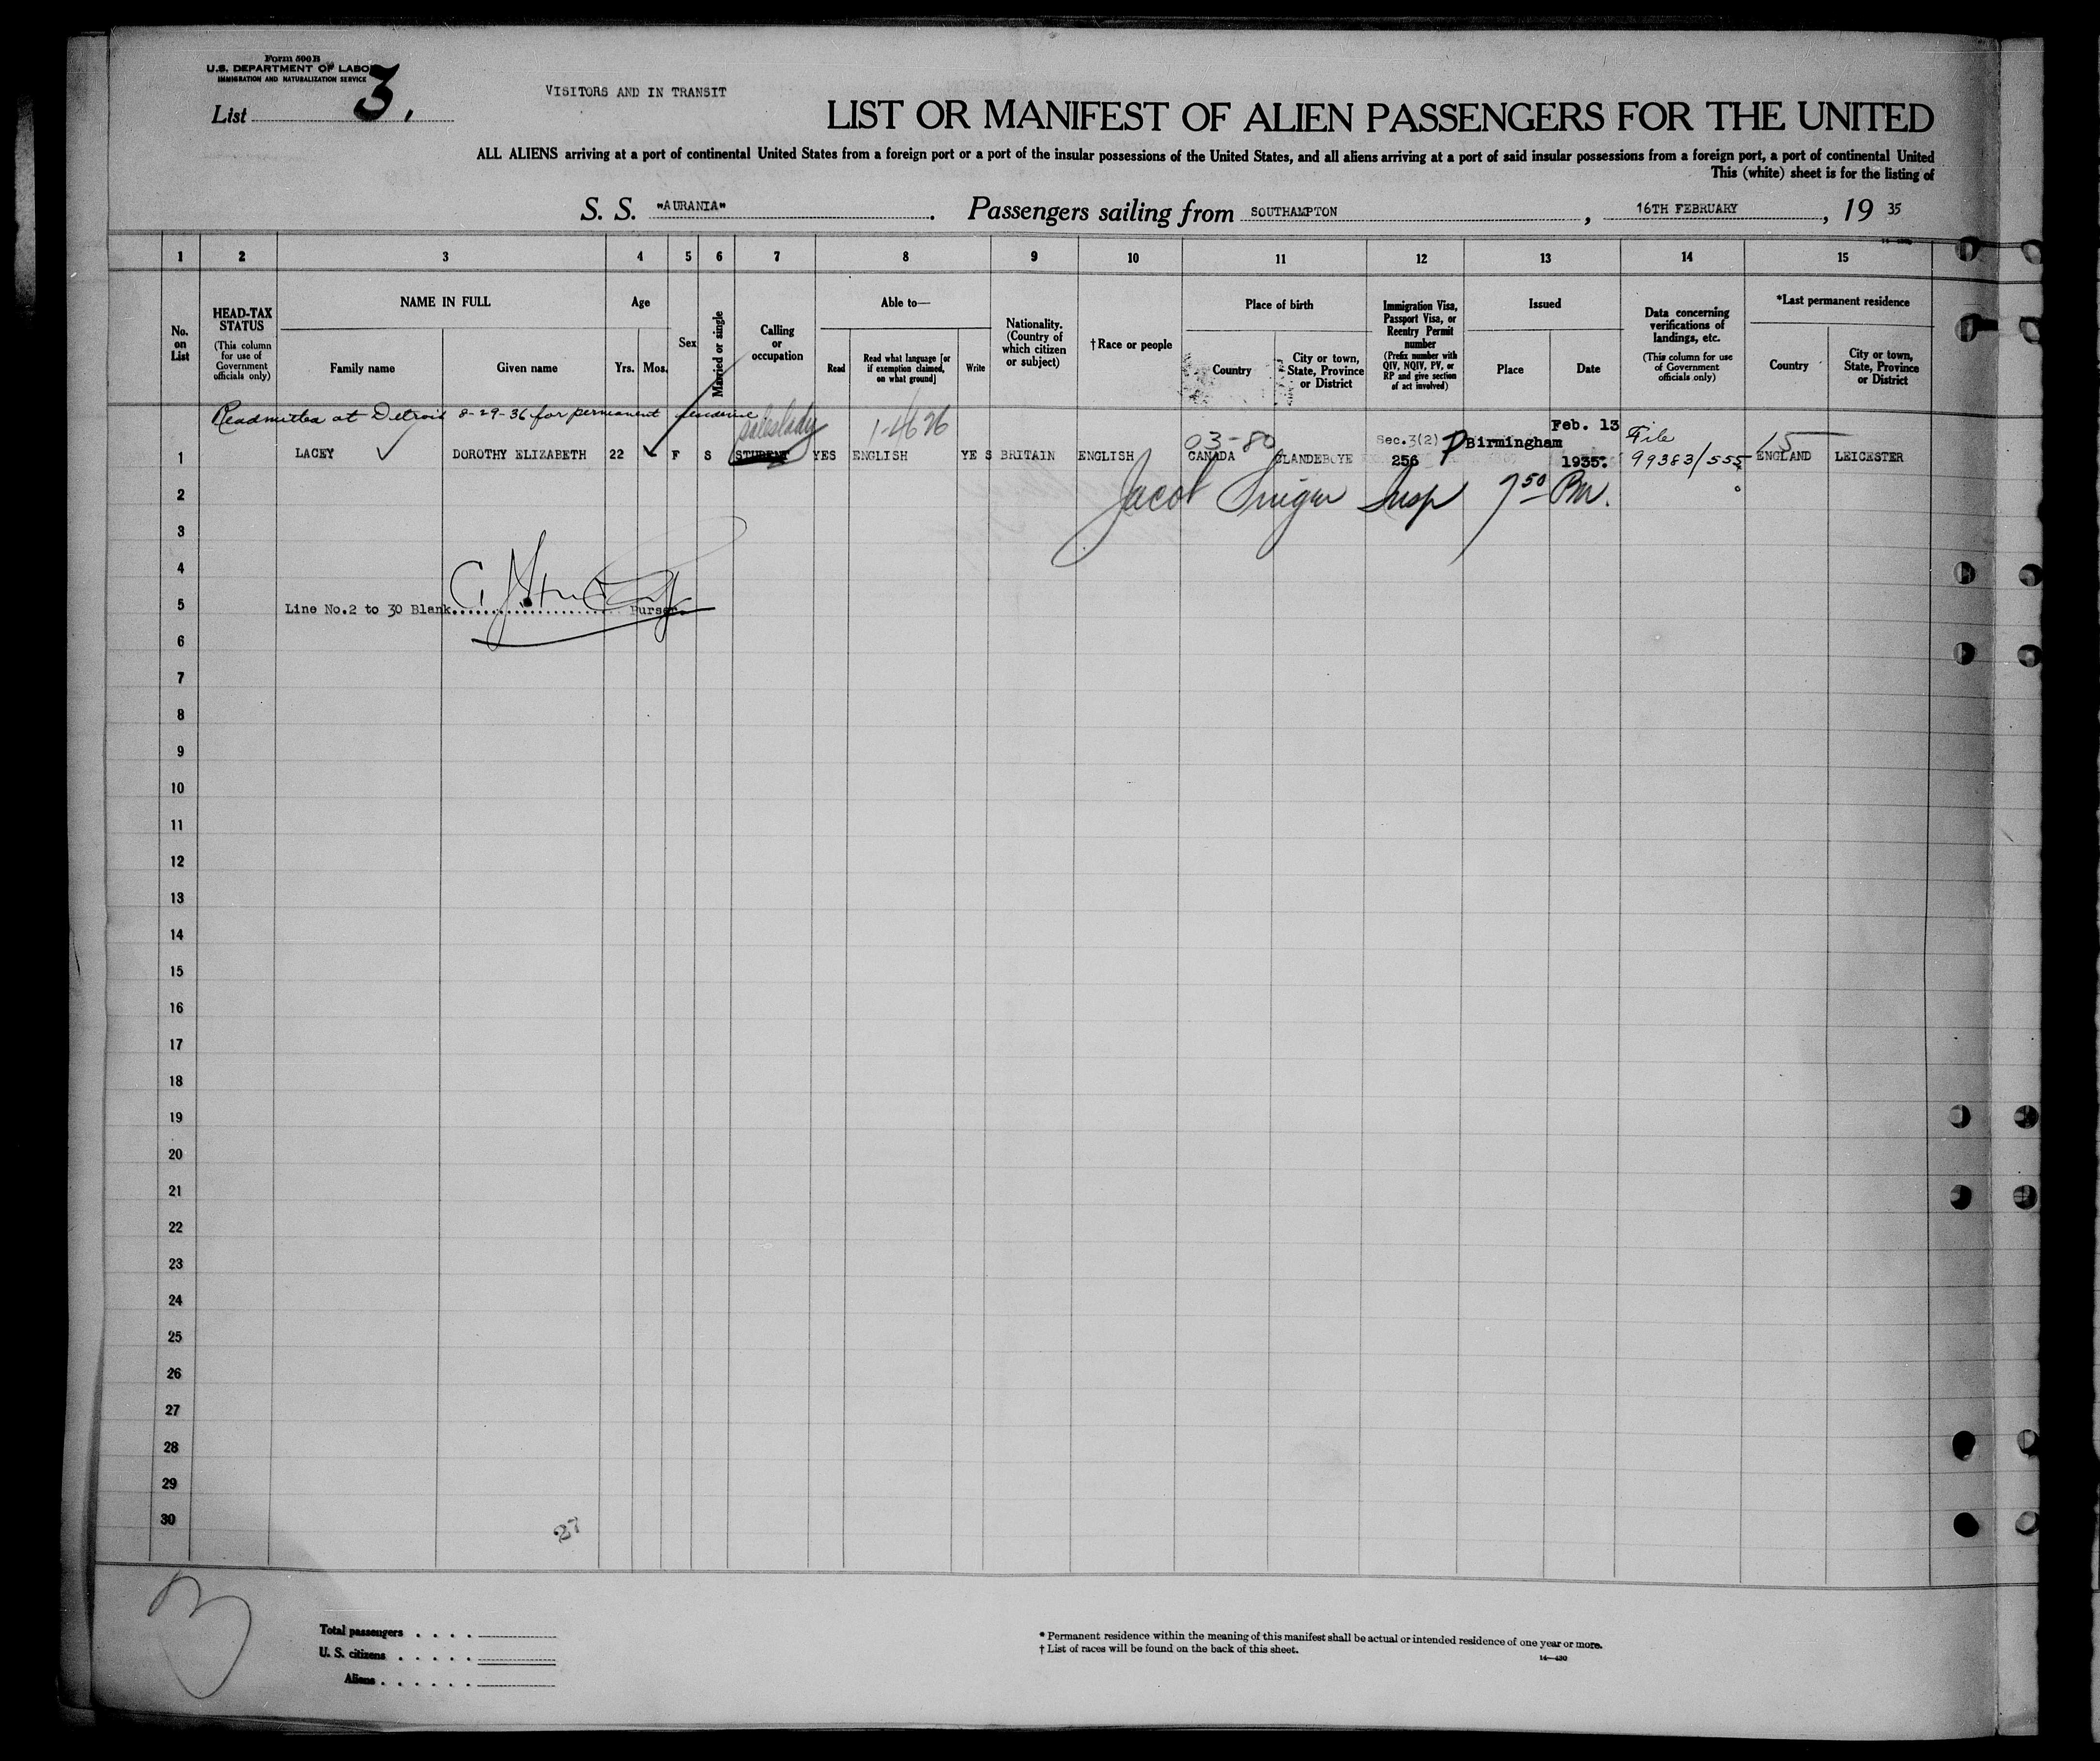 Form 500B
U.S. DEPARTMENT OF LABOR
IMMIGRATION AND NATURALIZATION SERVICE
List 3.
VISITORS AND IN TRANSIT
LIST OR MANIFEST OF ALIEN PASSENGERS FOR THE UNITED
ALL ALIENS arriving at a port of continental United States from a foreign port or a port of the insular possessions of the United States, and all aliens arriving at a port of said insular possessions from a foreign port, a port of continental United
This (white) sheet is for the listing of
S. S. "AURANIA". Passengers sailing from SOUTHAMPTON, 16TH FEBRUARY, 19 35
1 2 3 4 5 6 7 8 9 10 11 12 13 14 15
No. on List
HEAD-TAX STATUS (This column for use of Government officials only)
NAME IN FULL
Family name Given name
Age
Yrs. Mos.
Sex
Married or single
Calling or occupation
Able to—
Read Read what language [or if exemption claimed, on what ground] Write
Nationality. (Country of which citizen or subject)
†Race or people
Place of birth
Country City or town, State, Province or District
Immigration Visa, Passport Visa, or Reentry Permit number (Prefix number with QIV, NQIV, PV, or RP and give section of act involved)
Issued
Place Date
Data concerning verifications of landings, etc. (This column for use of Government officials only)
*Last permanent residence
Country City or town, State, Province or District
Readmitted at Detroit 8-29-36 for permanent residence
saleslady 1-4626 03-80 Sec.3(2) P Birmingham Feb. 13 File 15
1 LACEY ✓ DOROTHY ELIZABETH 22 ✓ F S STUDENT YES ENGLISH YES BRITAIN ENGLISH CANADA CLANDEBOYE 256 1935. 99383/555 ENGLAND LEICESTER
2 Jacob Insp 7 50 Pm.
3
4
5 Line No.2 to 30 Blank.................... Purser.
6
7
8
9
10
11
12
13
14
15
16
17
18
19
20
21
22
23
24
25
26
27
28
29
30
27
3
Total passengers . . . .
U. S. citizens . . . . .
Aliens . . . . . .
* Permanent residence within the meaning of this manifest shall be actual or intended residence of one year or more.
† List of races will be found on the back of this sheet.
14—430